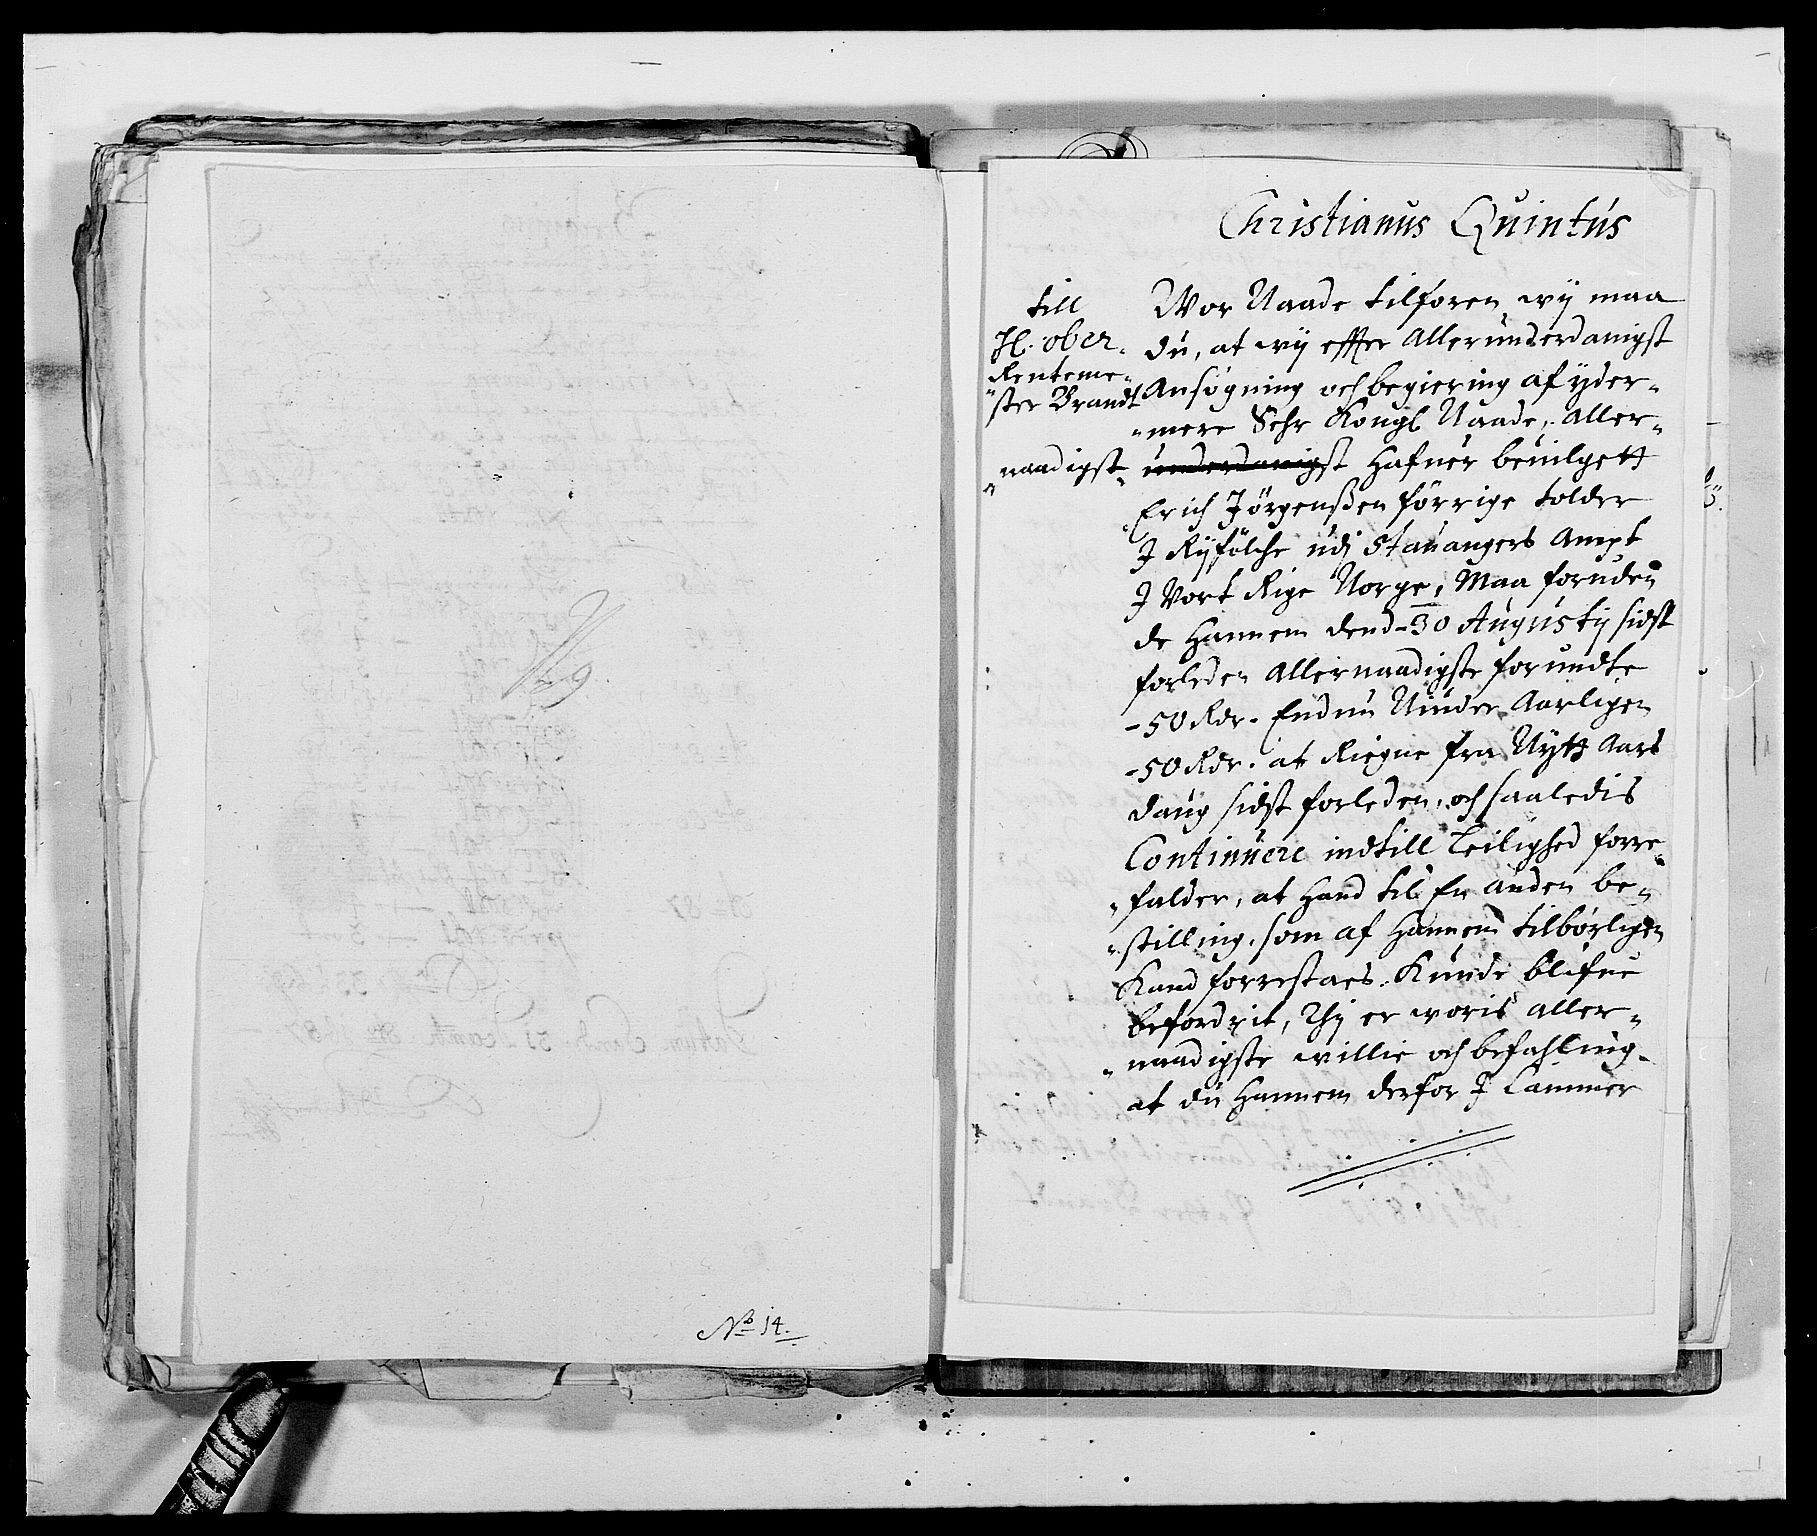 No 14.
Christianus Quintus
till
H. ober
Renteme-
ster Brandt
Wor Naade tilforen, wij maa
du, at wij effter Allerunderdanigst
Ansøgning och begiering af yder-
mere Kongl Naade, Aller-
naadigst underdanigst hafuer beuilgett
Erich Jørgenßen förrige tolder
J Ryfölche udj Stauangers Ampt
J Vort Rige Norge, Maa foruden
de hannem dend 30 Augustij sidst
forleden Allernaadigste forundte
50 Rdr. Endnu Niude Aarligen
50 Rdr. at Riegne fra Nytt Aars
daug sidst forleden, och saaledis
Continuere indtill Leilighed forre
falder, at hand til En anden be-
stilling, som af hannem tilbørligen
Kand forrestaes, Kunde blifue
befordrit, Thj er woris aller-
naadigste willie och befahling
at du hannem derfor J Cammer